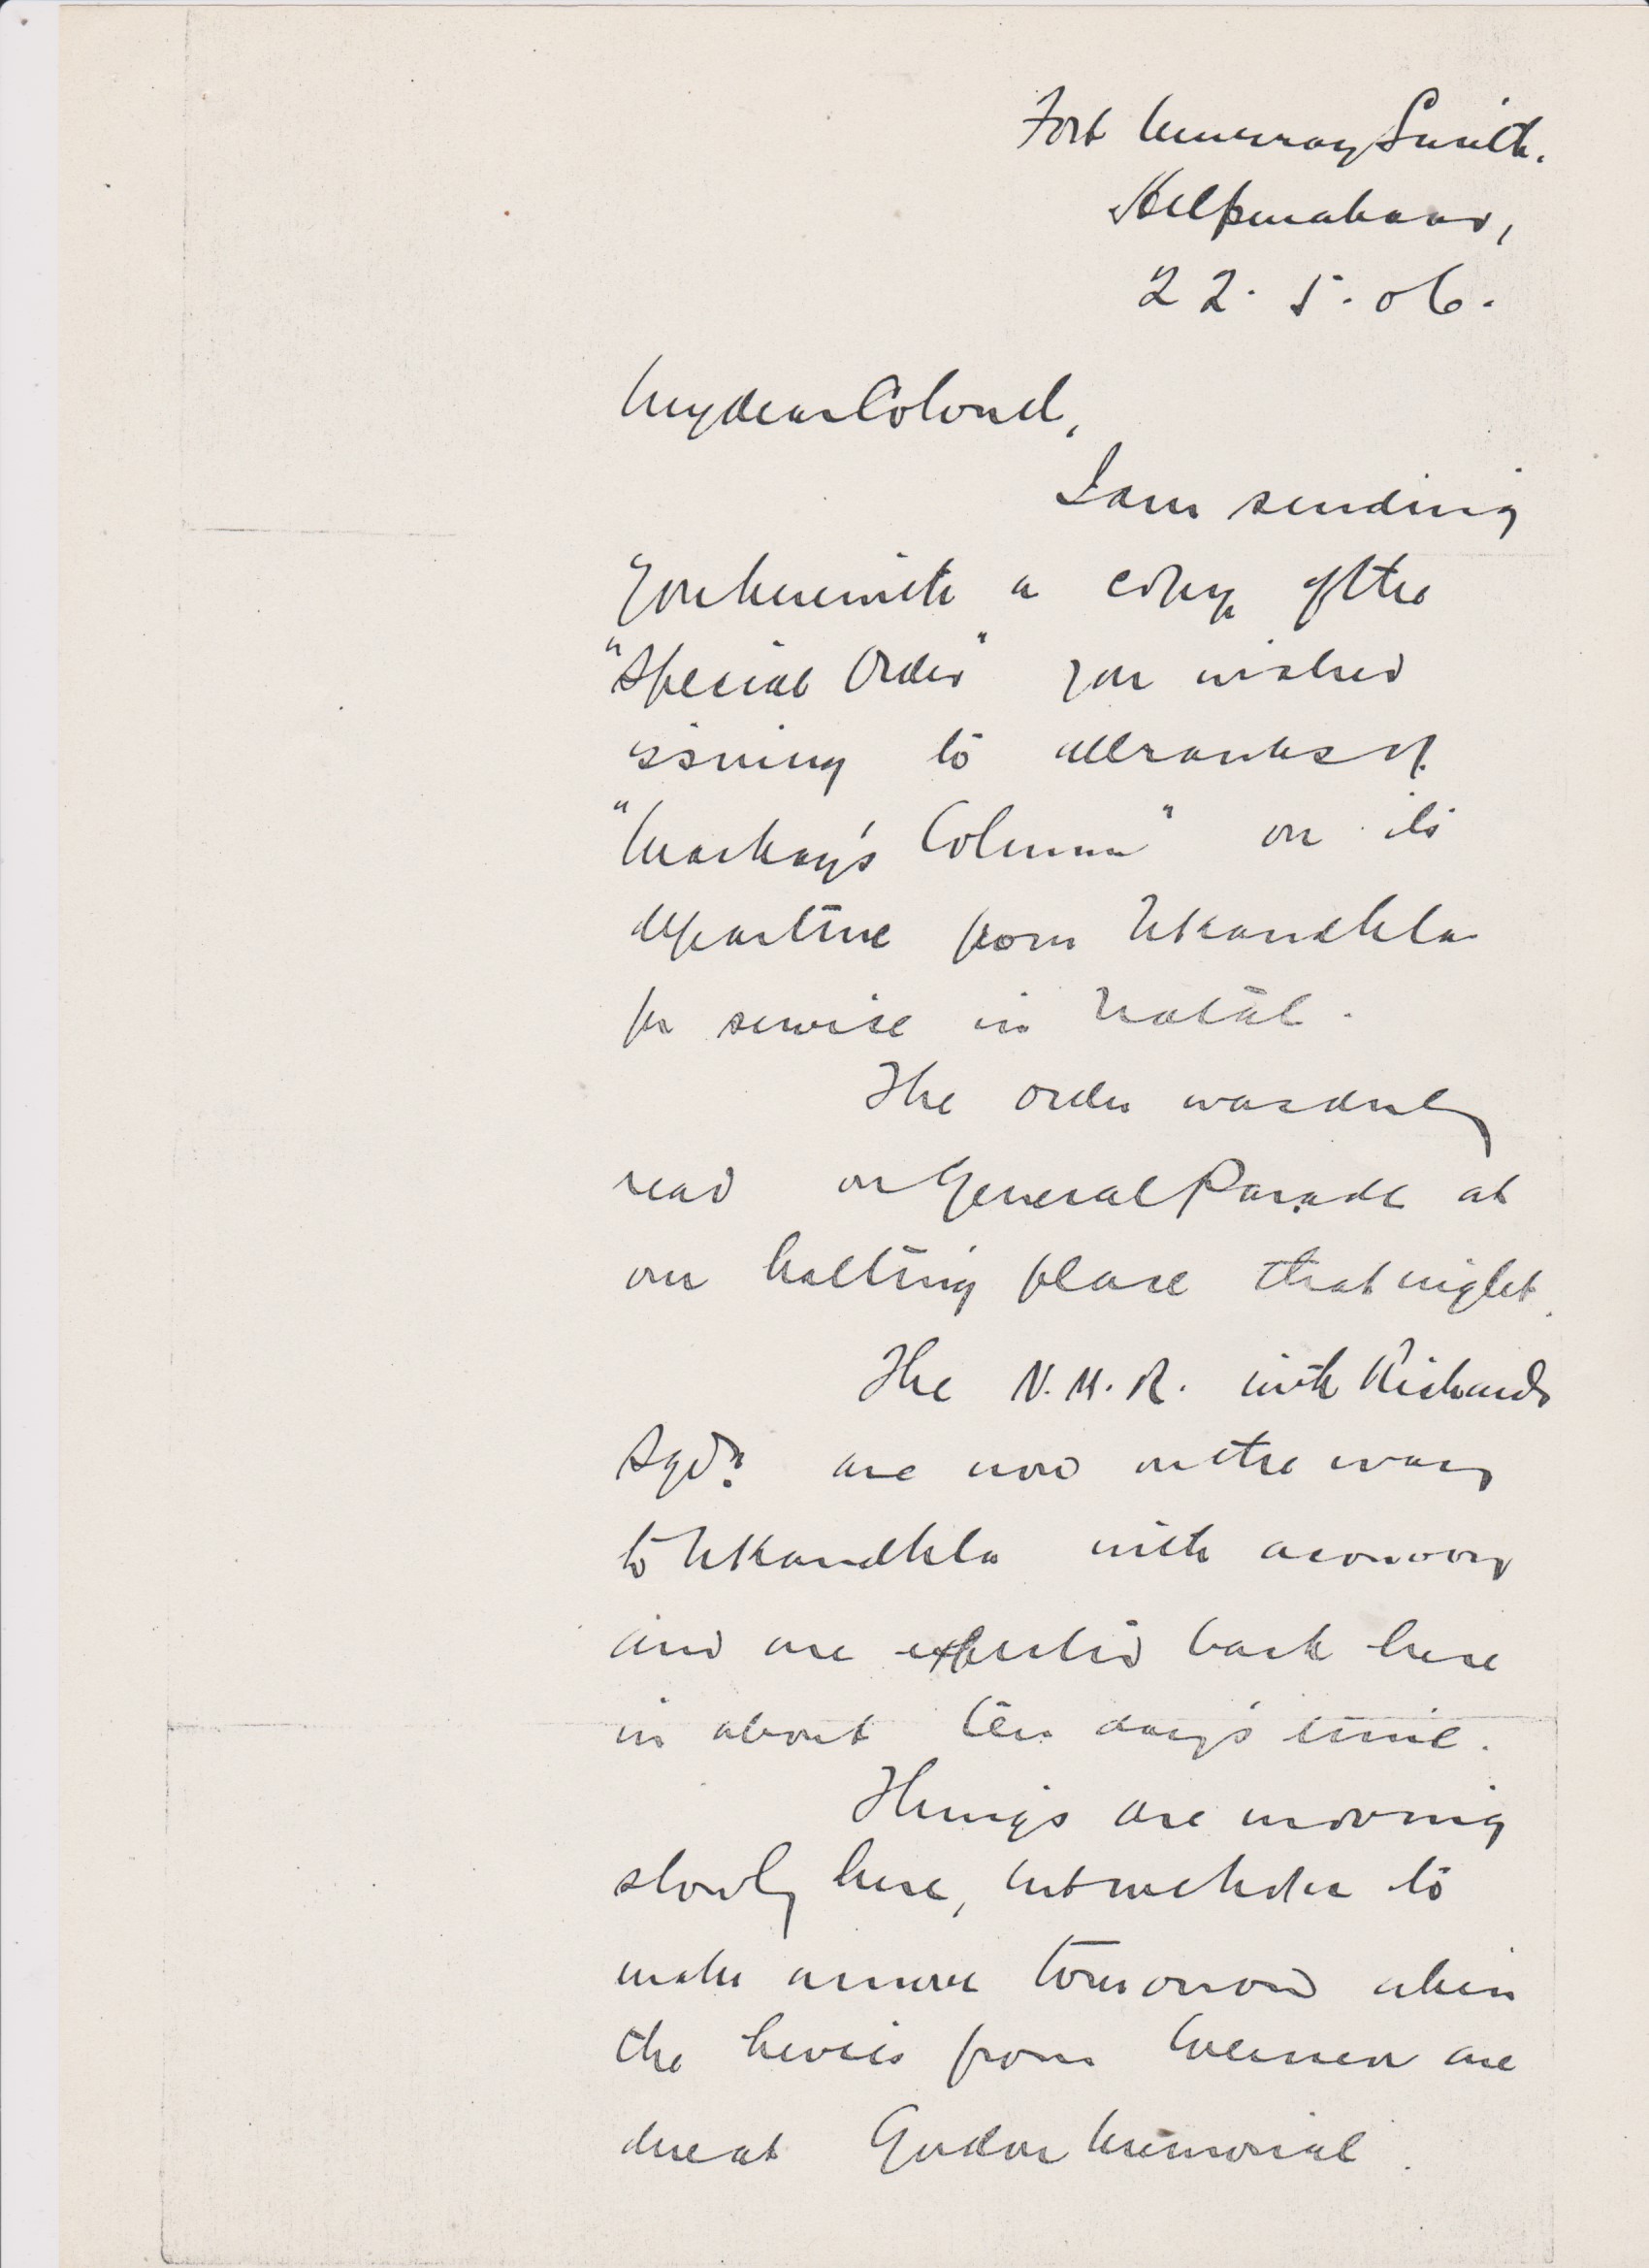 Fort Murray Smith.
Helpmakaar,
22.5.06.
My dear Colonel,
I am sending
you herewith a copy of the
"Special Order" you wished
issuing to all ranks of
"Mackay's Column" on its
departure from Nkandhla
for service in Natal.
The order was duly
read on General Parade at
our halting place that night.
The N.M.R. with Richards
Sqdn are now on the way
to Nkandhla with a convoy
and are expected back here
in about ten day's time.
Things are moving
slowly here, but we hope to
make a move tomorrow when
the levies from Weenen are
due at Gordon Memorial.